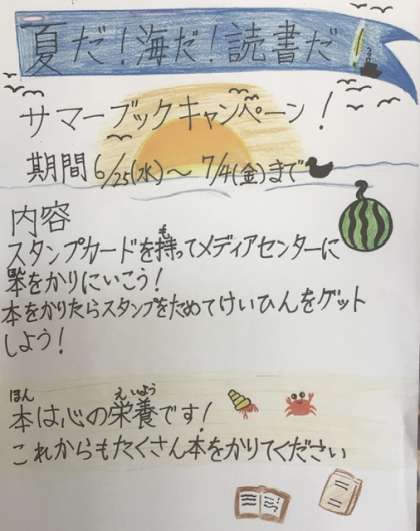 夏だ！海だ！読書だ
サマーブックキャンペーン！
期間 6/25(水)～7/4(金)まで
内容
スタンプカードを持ってメディアセンターに
本をかりにいこう！
本をかりたらスタンプをためてけいひんをゲット
しよう！
本は心の栄養です！
これからもたくさん本をかりてください